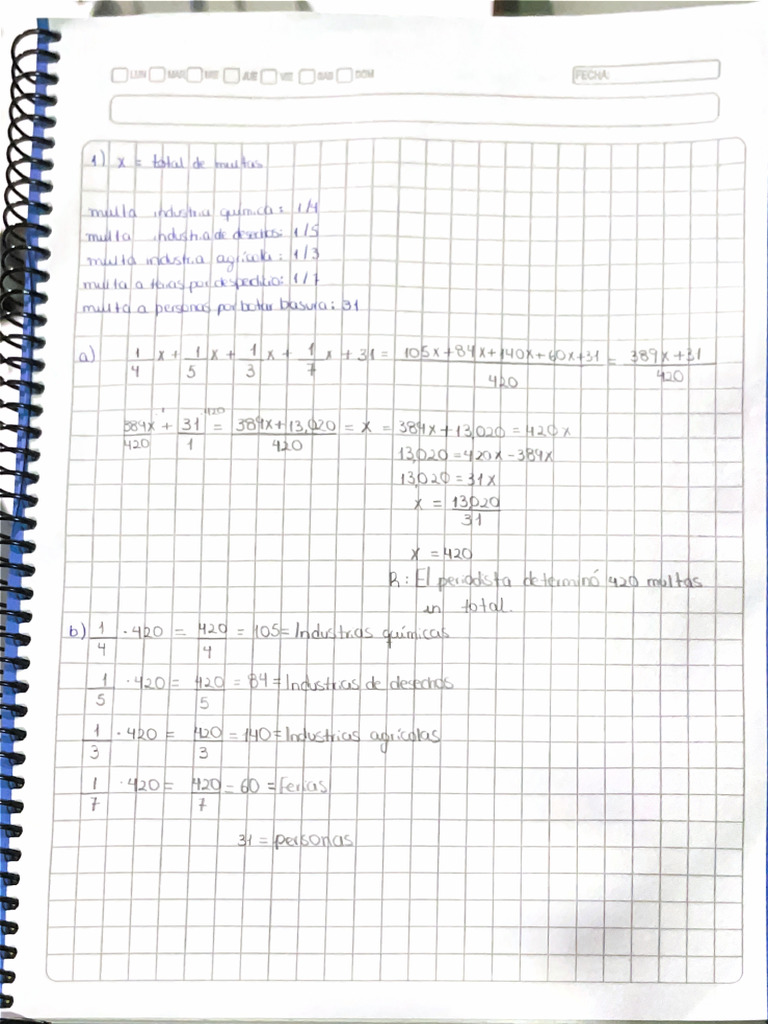 LUN MAR MIE JUE VIE SAB DOM FECHA:
1) x = total de multas
multa industria química: 1/4
multa industria de desechos: 1/5
multa industria agrícola: 1/3
multa a ferias por desperdicio: 1/7
multa a personas por botar basura: 31
a) 1/4 x + 1/5 x + 1/3 x + 1/7 x + 31 = 105x+84x+140x+60x+31/420 = 389x+31/420
389x/420 + 31/1 = 389x+13,020/420 = x = 389x+13,020 = 420x
13,020 = 420x - 389x
13,020 = 31x
x = 13,020/31
x = 420
R: El periodista determinó 420 multas
en total.
b) 1/4 · 420 = 420/4 = 105 = Industrias químicas
1/5 · 420 = 420/5 = 84 = Industrias de desechos
1/3 · 420 = 420/3 = 140 = Industrias agrícolas
1/7 · 420 = 420/7 = 60 = Ferias
31 = personas